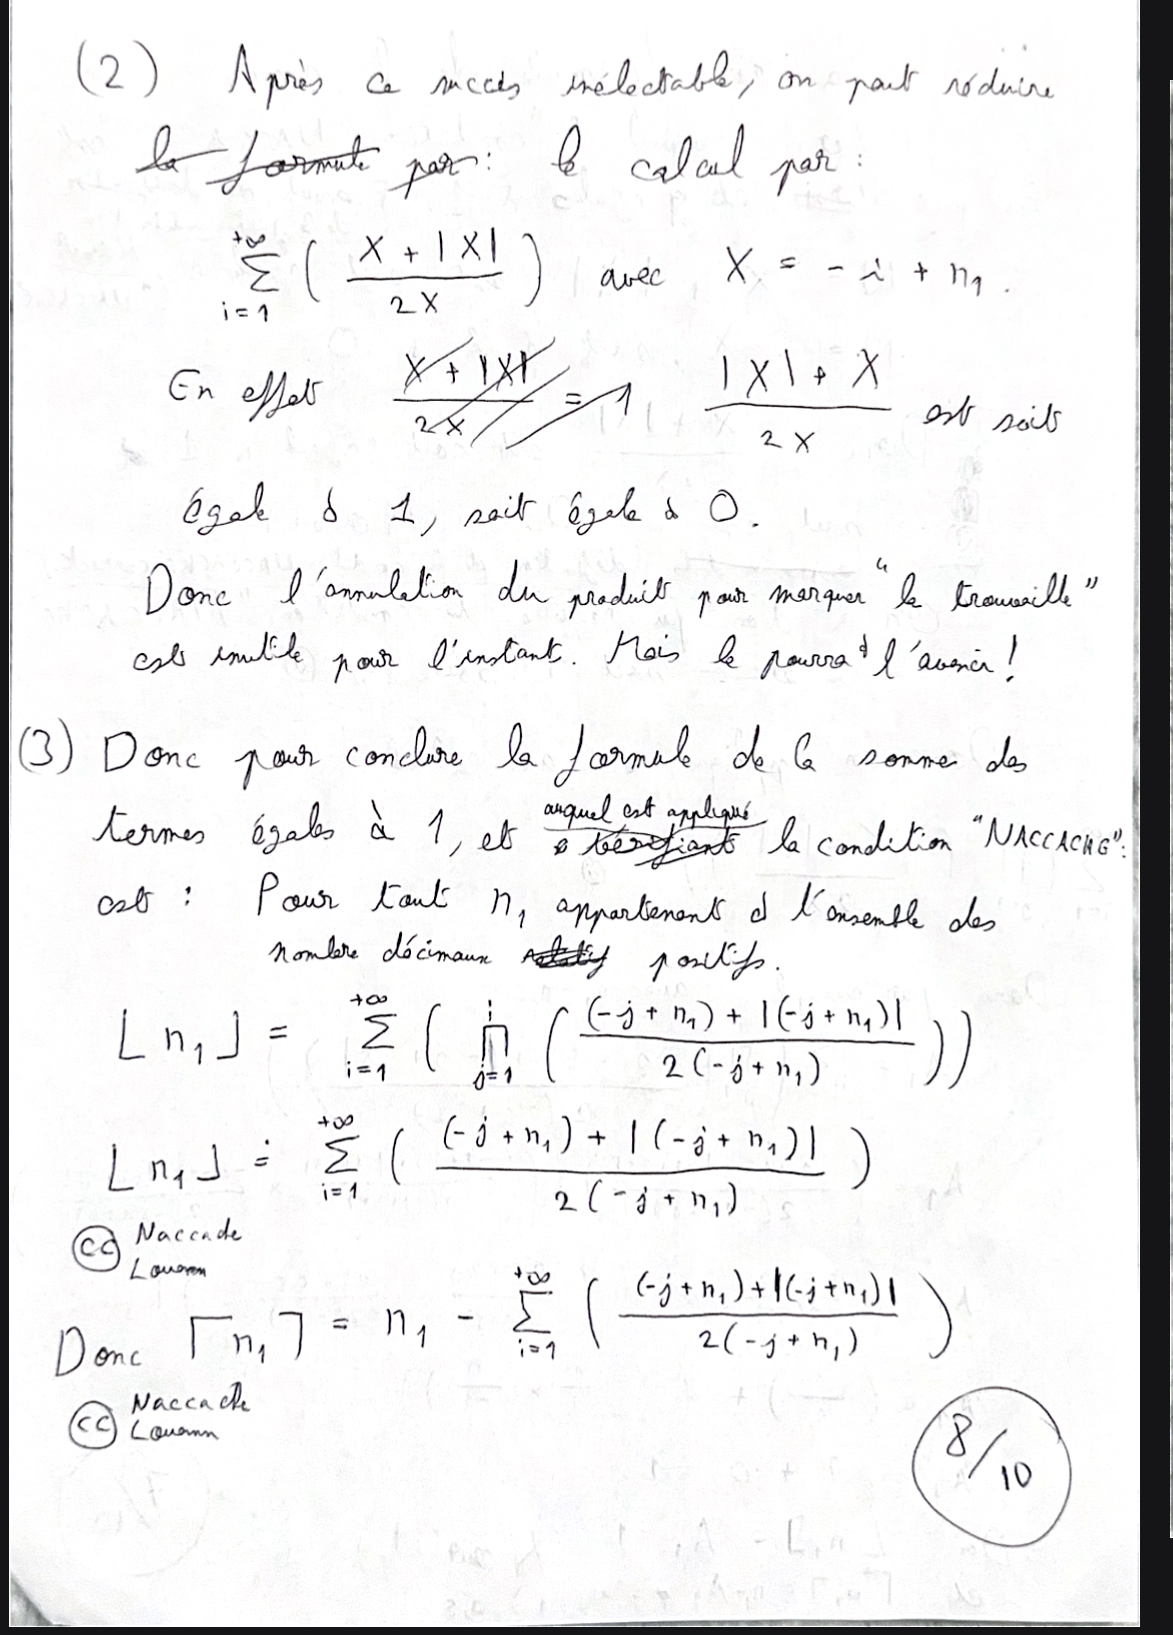 (2) Après ce succès inélectable, on peut réduire
la formule par : le calcul par :
+∞ Σ i=1 ( (X + |X|) / 2X ) avec X = - i + n₁ .
En effet (X + |X|) / 2X = 1 (|X| + X) / 2X est soit
égale à 1, soit égale à 0.
Donc l'annulation du produit pour marquer "la trouvaille"
est inutile pour l'instant. Mais le pourra à l'avenir !
(3) Donc pour conclure la formule de la somme des
termes égales à 1, et vérifiant auquel est appliqué la condition "NACCACHE":
est : Pour tout n₁ appartenant à l'ensemble des
nombre décimaux relatifs positifs.
⌊n₁⌋ = +∞ Σ i=1 ( i ∏ j=1 ( ((-j + n₁) + |(-j + n₁)|) / 2(-j + n₁) ) )
⌊n₁⌋ = +∞ Σ i=1 ( ((-j + n₁) + |(-j + n₁)|) / 2(-j + n₁) )
(CC) Naccache
Louann
Donc ⌈n₁⌉ = n₁ - +∞ Σ i=1 ( ((-j + n₁) + |(-j + n₁)|) / 2(-j + n₁) )
(CC) Naccache
Louann
8/10